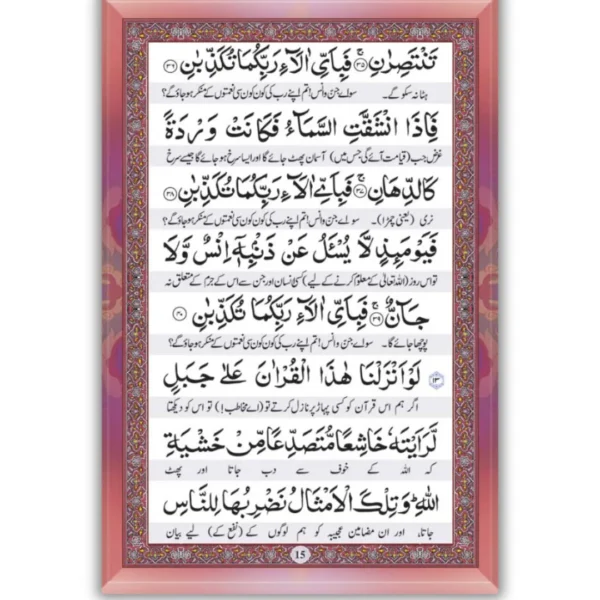 تَنْتَصِرٰنِ ۚ﴿۳۵﴾ فَبِاَیِّ اٰلَآءِ رَبِّکُمَا تُکَذِّبٰنِ ﴿۳۶﴾
ہٹا نہ سکو گے۔ سو اے جن وانس! تم اپنے رب کی کون کون سی نعمتوں کے منکر ہو جاؤ گے؟
فَاِذَا انْشَقَّتِ السَّمَآءُ فَکَانَتْ وَرْدَۃً
غرض جب (قیامت آئے گی جس میں) آسمان پھٹ جائے گا اور ایسا سرخ ہو جائے گا جیسے سرخ
کَالدِّهَانِ ۚ﴿۳۷﴾ فَبِاَیِّ اٰلَآءِ رَبِّکُمَا تُکَذِّبٰنِ ﴿۳۸﴾
نری (یعنی چمڑا)۔ سو اے جن وانس! تم اپنے رب کی کون کون سی نعمتوں کے منکر ہو جاؤ گے؟
فَیَوْمَئِذٍ لَّا یُسْـَٔلُ عَنْ ذَنْۢبِهٖۤ اِنْسٌ وَّلَا
تو اس روز (اللہ تعالیٰ کے معلوم کرنے کے لیے) کسی انسان اور جن سے اس کے جرم کے متعلق نہ
جَآنٌّ ۚ﴿۳۹﴾ فَبِاَیِّ اٰلَآءِ رَبِّکُمَا تُکَذِّبٰنِ ﴿۴۰﴾
پوچھا جائے گا۔ سو اے جن وانس! تم اپنے رب کی کون کون سی نعمتوں کے منکر ہو جاؤ گے؟
۱۳ لَوْ اَنْزَلْنَا هٰذَا الْقُرْاٰنَ عَلٰی جَبَلٍ
اگر ہم اس قرآن کو کسی پہاڑ پر نازل کرتے تو (اے مخاطب!) تو اس کو دیکھتا
لَّرَاَیْتَهٗ خَاشِعًا مُّتَصَدِّعًا مِّنْ خَشْیَۃِ
کہ اللہ کے خوف سے دب جاتا اور پھٹ
اللّٰهِ ؕ وَتِلْکَ الْاَمْثَالُ نَضْرِبُهَا لِلنَّاسِ
جاتا، اور ان مضامین عجیبہ کو ہم لوگوں کے (نفع کے) لیے بیان
15